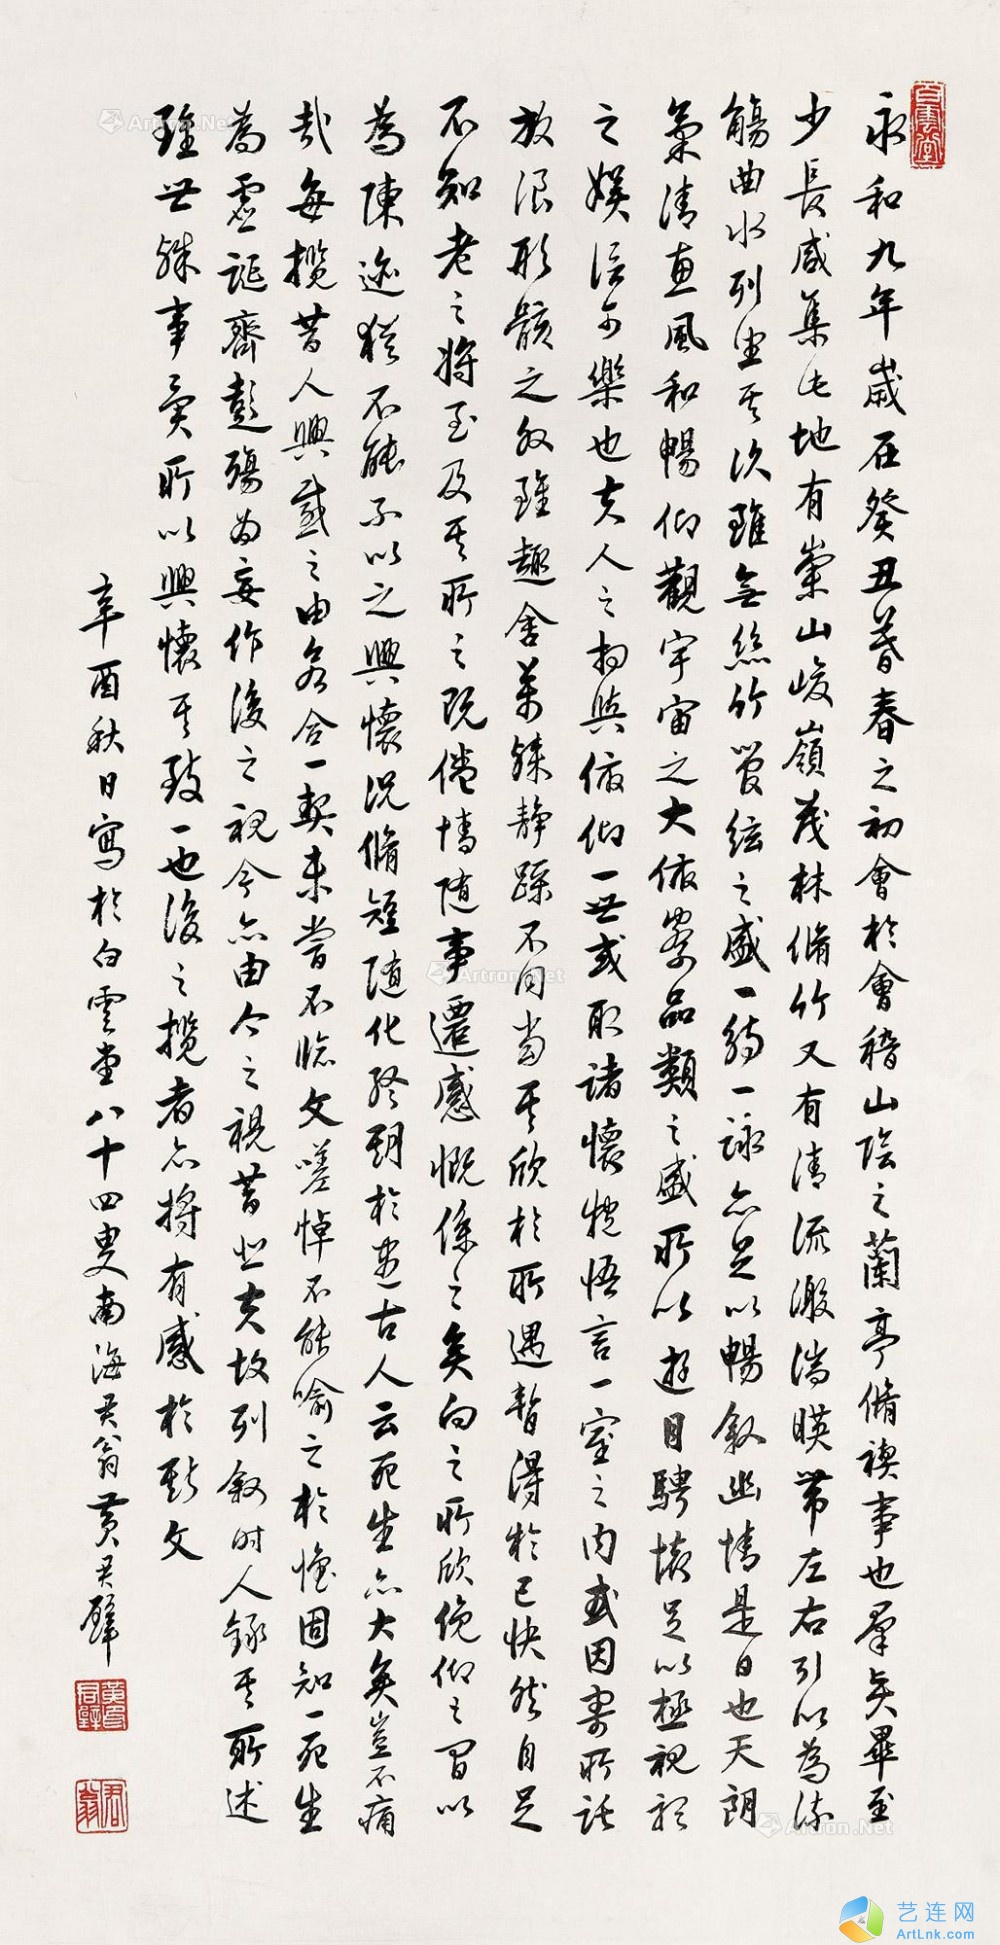 白雲堂
永和九年歲在癸丑暮春之初會於會稽山陰之蘭亭脩禊事也羣賢畢至
少長咸集此地有崇山峻嶺茂林脩竹又有清流激湍暎帶左右引以為流
觴曲水列坐其次雖無絲竹管絃之盛一觴一詠亦足以暢敘幽情是日也天朗
氣清惠風和暢仰觀宇宙之大俯察品類之盛所以遊目騁懷足以極視聽
之娛信可樂也夫人之相與俯仰一世或取諸懷抱悟言一室之內或因寄所託
放浪形骸之外雖趣舍萬殊靜躁不同當其欣於所遇暫得於己快然自足
不知老之將至及其所之既倦情隨事遷感慨係之矣向之所欣俛仰之間以
為陳迹猶不能不以之興懷況脩短隨化終期於盡古人云死生亦大矣豈不痛
哉每攬昔人興感之由若合一契未嘗不臨文嗟悼不能喻之於懷固知一死生
為虛誕齊彭殤為妄作後之視今亦由今之視昔悲夫故列敘時人錄其所述
雖世殊事異所以興懷其致一也後之攬者亦將有感於斯文
辛酉秋日寫於白雲堂八十四叟南海君翁黃君璧
黃君璧
君翁
Artron.Net
Artron.Net
Artron.Net
艺连网
ArtLnk.com